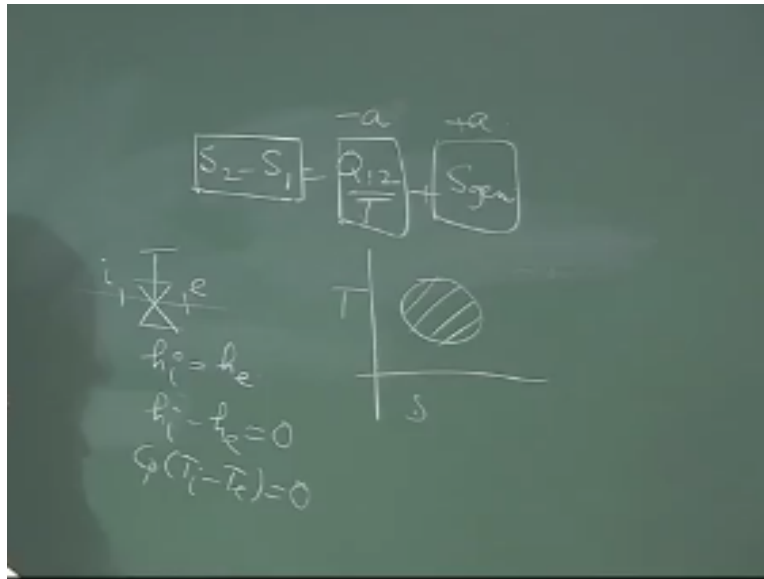 -a +a
S₂ - S₁ = Q₁₂/T + Sgen
i e
T
hᵢ = hₑ
S
hᵢ - hₑ = 0
Cp(Tᵢ - Tₑ) = 0